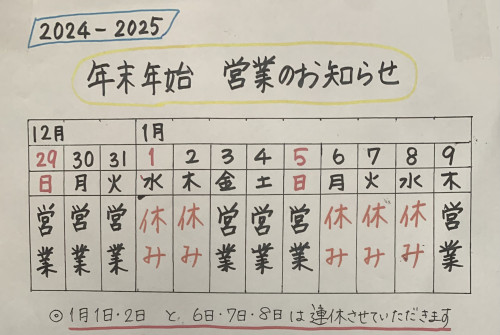 2024-2025
年末年始 営業のお知らせ
12月 1月
29 30 31 1 2 3 4 5 6 7 8 9
日 月 火 水 木 金 土 日 月 火 水 木
営業 営業 営業 休み 休み 営業 営業 営業 休み 休み 休み 営業
◎1月1日・2日 と 6日・7日・8日は連休させていただきます